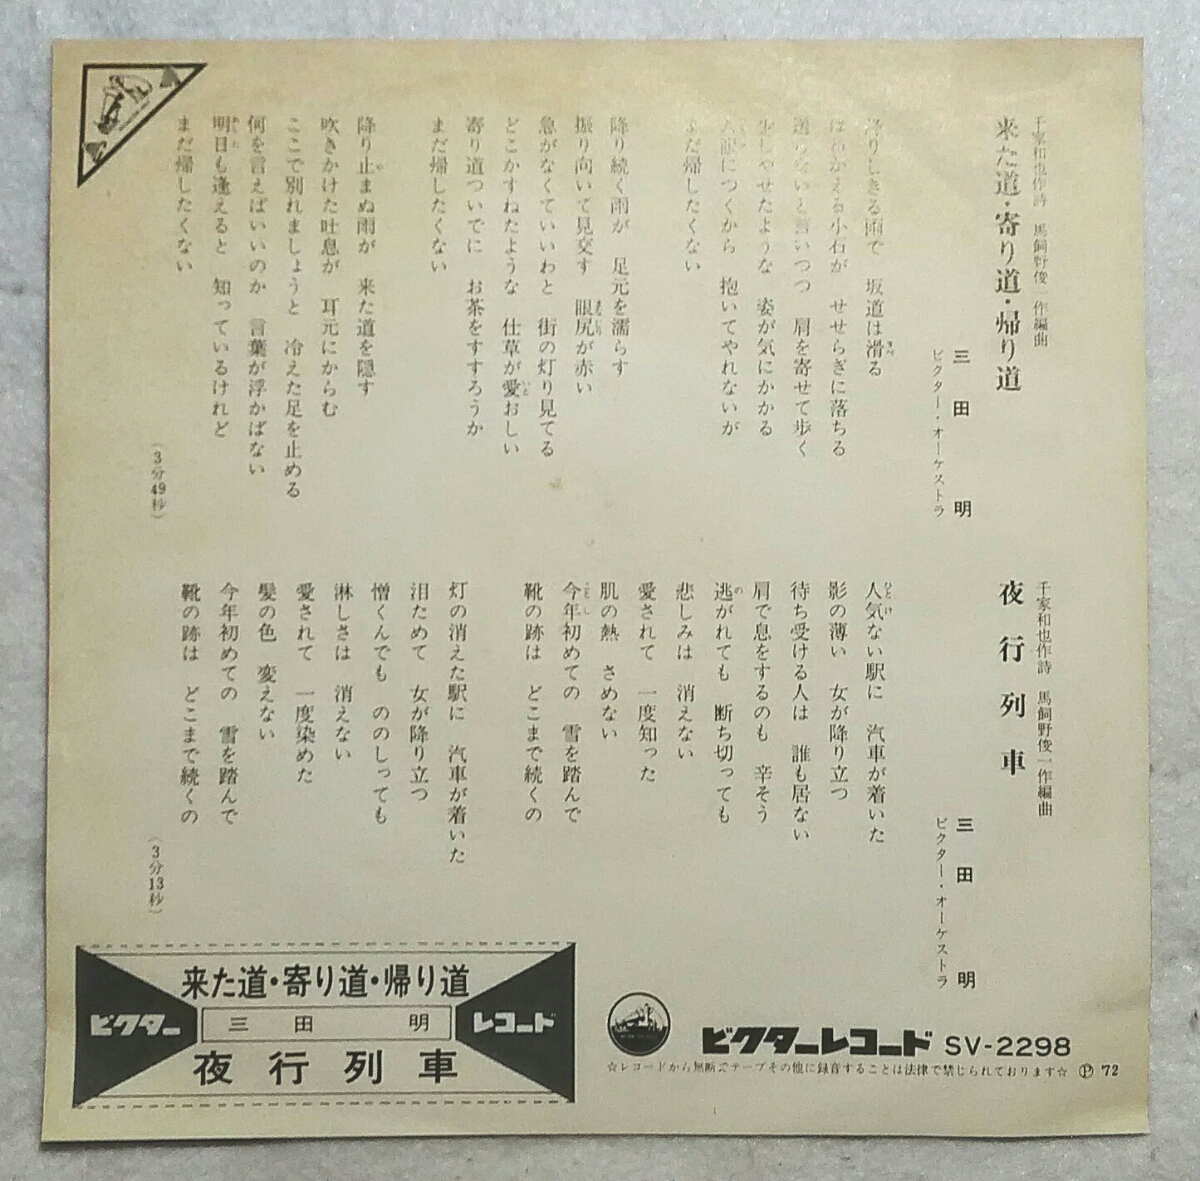 千家和也作詩　馬飼野俊一作編曲
来た道・寄り道・帰り道
三田　明
ビクター・オーケストラ
降りしきる雨で　坂道は滑る
小石が　せせらぎに落ちる
言いつつ　肩を寄せて歩く
少しやせたような　姿が気にかかる
人眼につくから　抱いてやれないが
まだ帰したくない
降り続く雨が　足元を濡らす
振り向いて見交す　眼尻が赤い
急がなくていいわと　街の灯り見てる
どこかすねたような　仕草が愛おしい
寄り道ついでに　お茶をすすろうか
まだ帰したくない
降り止まぬ雨が　来た道を隠す
吹きかけた吐息が　耳元にからむ
ここで別れましょうと　冷えた足を止める
何を言えばいいのか　言葉が浮かばない
明日も逢えると　知っているけれど
まだ帰したくない
(3分49秒)
千家和也作詩　馬飼野俊一作編曲
夜行列車
三田　明
ビクター・オーケストラ
人気ない駅に　汽車が着いた
影の薄い　女が降り立つ
待ち受ける人は　誰も居ない
肩で息をするのも　辛そう
逃がれても　断ち切っても
悲しみは　消えない
愛されて　一度知った
肌の熱　さめない
今年初めての　雪を踏んで
靴の跡は　どこまで続くの
灯の消えた駅に　汽車が着いた
泪ためて　女が降り立つ
憎くんでも　ののしっても
淋しさは　消えない
愛されて　一度染めた
髪の色　変えない
今年初めての　雪を踏んで
靴の跡は　どこまで続くの
(3分13秒)
来た道・寄り道・帰り道
ビクター　三田　明　レコード
夜行列車
ビクターレコード SV-2298
☆レコードから無断でテープその他に録音することは法律で禁じられております☆ Ⓟ '72